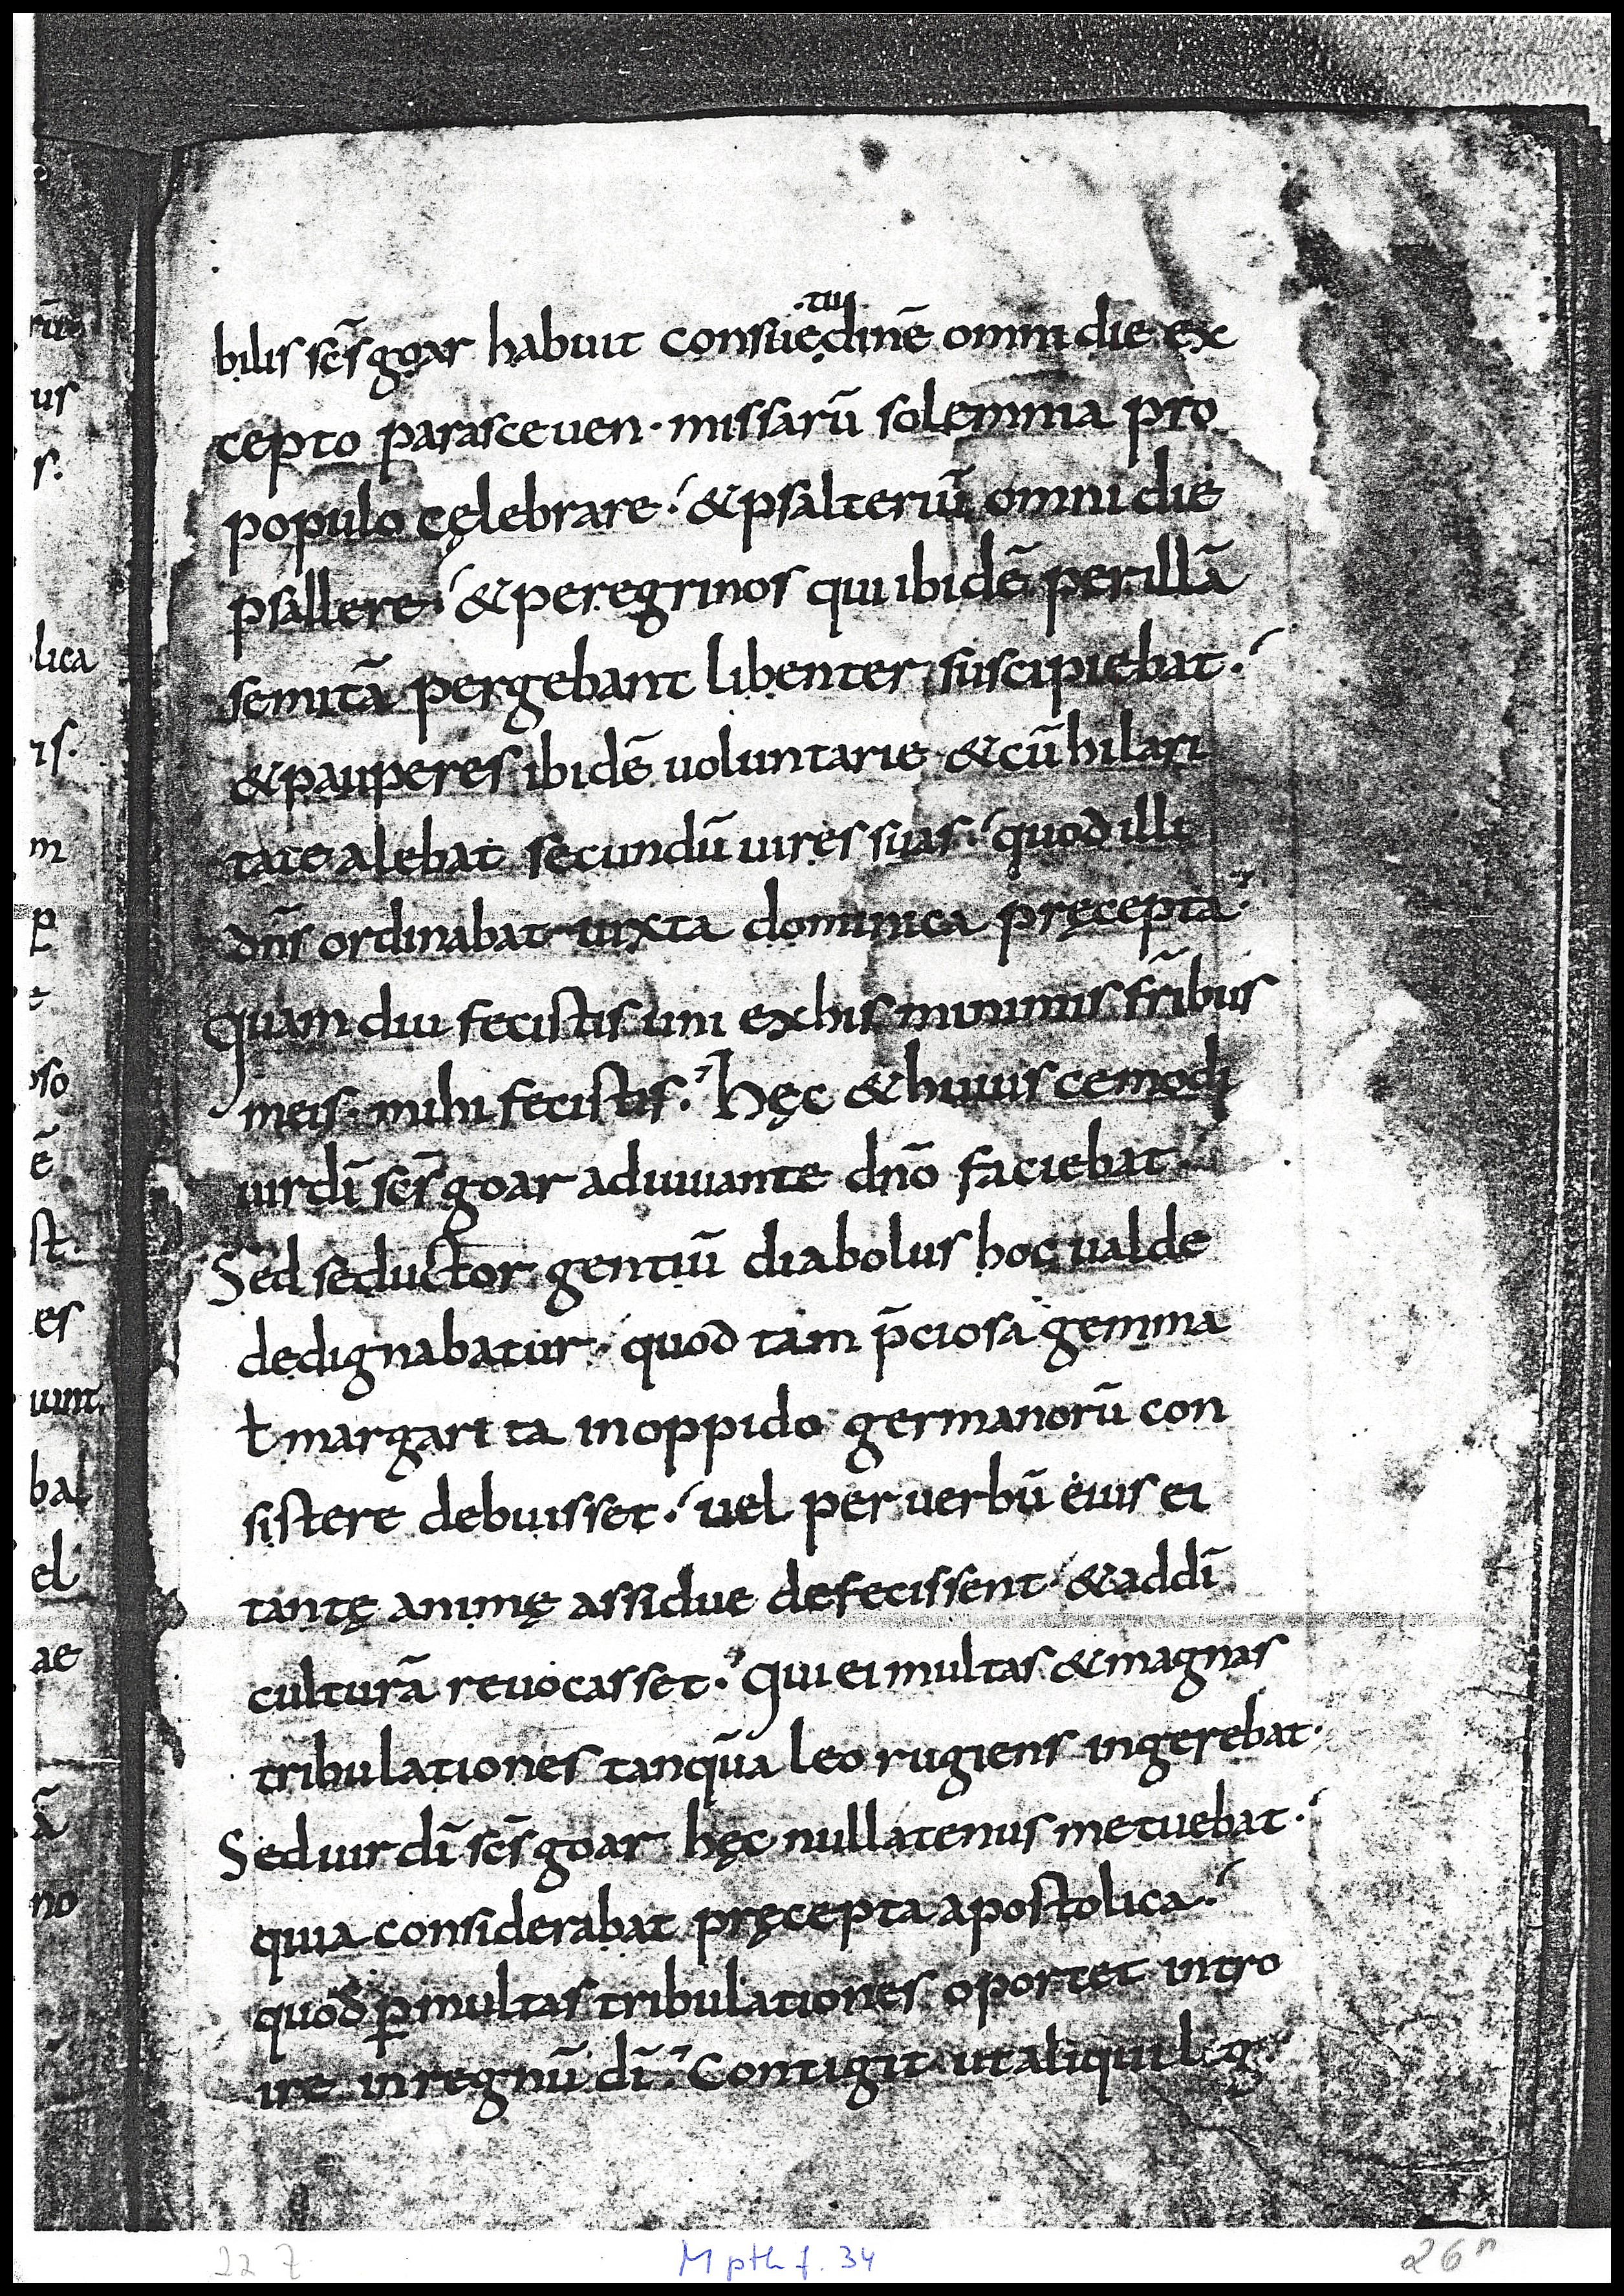 bilis scs̄ goar habuit consuę·tu·dinē omni die ex
cepto parasceuen · missarū solemnia pro
populo cęlebrare ·/ & psalteriū omni die
psallere ·/ & peregrinos qui ibidē per illā
semitā pergebant libenter suscipiebat ·/
& pauperes ibidē uoluntarie & cū hilari
tate alebat secundū uires suas ·/ quod illi
dn̄s ordinabat iuxta dominica pręcepta·
Quam diu fecistis uni ex his minimis fr̄ibus
meis · mihi fecistis · Hęc & huius cemodi
uir dī scs̄ goar adiuuante dn̄o faciebat ·
Sed seductor gentiū diabolus hoc ualde
dedignabatur ·/ quod tam p̄ciosa gemma
ł margarita in oppido germanorū con
sistere debuisset ·/ uel per uerbū eius ei
tantę animę assidue defecissent ·/ & ad dī
culturā reuocasset · Qui ei multas & magnas
tribulationes tanqūa leo rugiens ingerebat·
Sed uir dī scs̄ goar hęc nullatenus metuebat ·/
quia considerabat pręcepta apostolica ·/
quod ꝑ multas tribulationes oportet intro
ire in regnū dī · Contigit ut aliqui leg
rū
us
s·
lica
is·
m
ꝑ
e
oso
ē
st·
es
uunt
ba
el
ae
ā
no
22 7
M pth f. 34
26 r